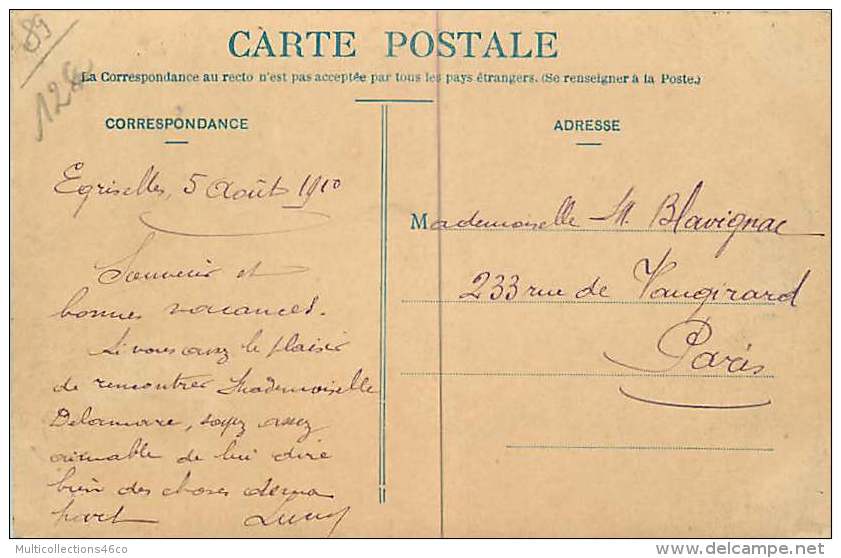 89
128
CARTE POSTALE
La Correspondance au recto n'est pas acceptée par tous les pays étrangers. (Se renseigner à la Poste.)
CORRESPONDANCE
Egriselles, 5 Août 1910
Souvenir et
bonnes vacances.
Si vous avez le plaisir
de rencontrer Mademoiselle
Delamare, soyez assez
aimable de lui dire
bien des choses de ma
part Lucy
ADRESSE
Mademoiselle M. Blavignac
233 rue de Vaugirard
Paris
Multicollections46co
delcampe.net